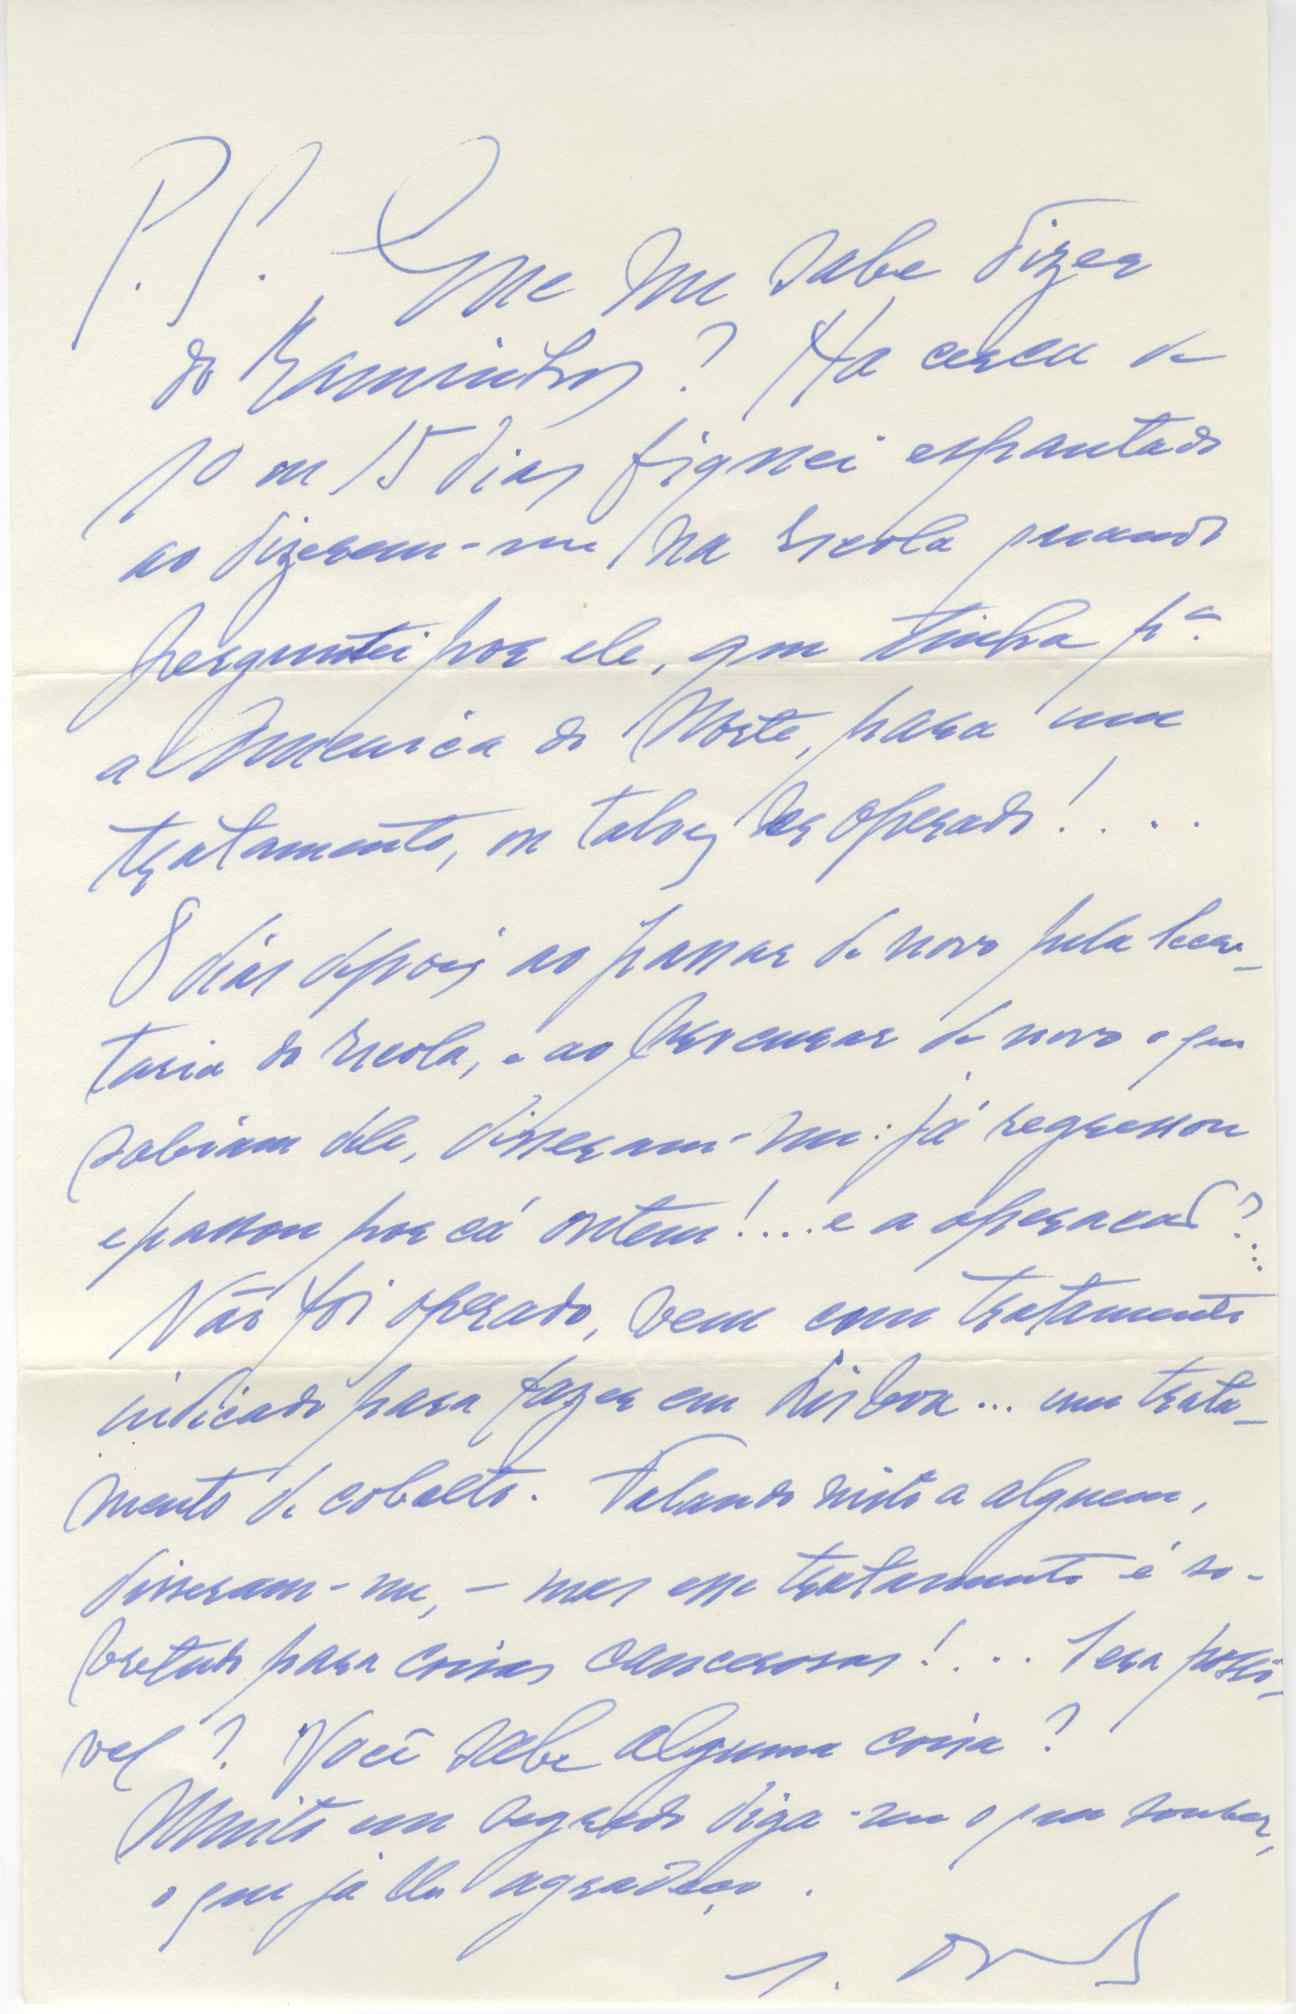 P.S. Que me sabe dizer
do Raminhos? Ha cerca de
10 ou 15 dias fiquei espantado
ao dizerem-me na Escola quando
perguntei por ele, que tinha pª.
a America do Norte, para um
tratamento, ou talvez ser operado!...
8 dias depois ao passar de novo pela secre-
taria da Escola, e ao procurar de novo o que
sabiam dele, disseram-me: já regressou
e passou por cá ontem!.... e a operacao?...
Não foi operado, vem com tratamento
indicado para fazer em Lisboa... um trata-
mento de cobalto. Falando nisto a alguem,
disseram-me, - mas esse tratamento é so-
bretudo para coisas cancerosas!... Sera possi-
vel? Você sabe alguma coisa?
Muito em segredo diga-me o que souber,
o que já lhe agradeço.